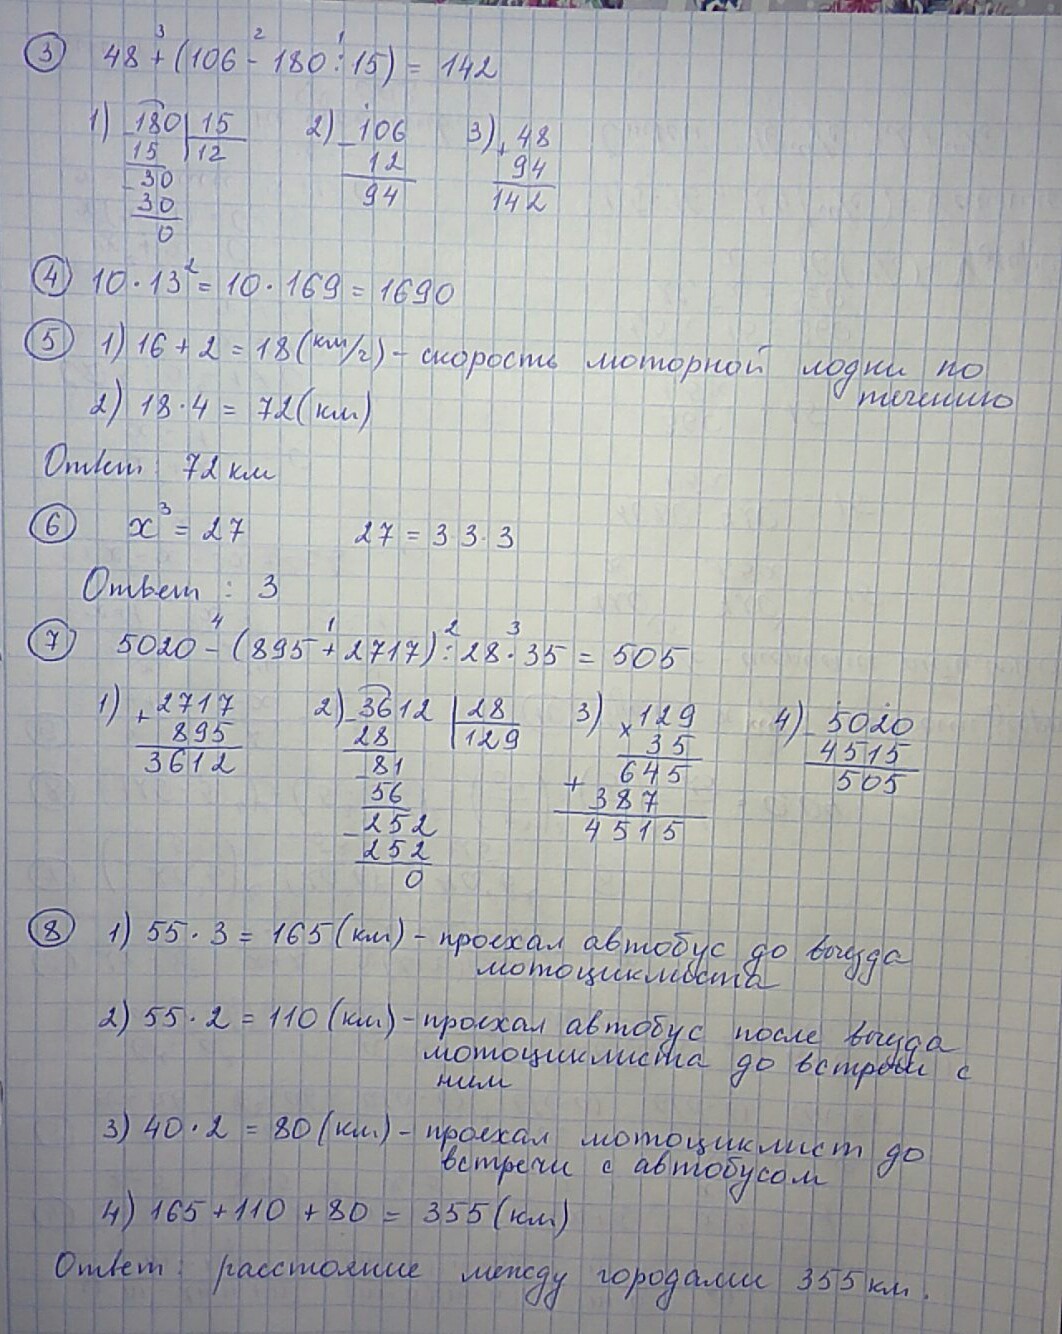 ③ 48 + (106 - 180 : 15) = 142
3 2 1
1) 180 | 15
15 | 12
30
30
0
2) 106
- 12
94
3) 48
+ 94
142
④ 10 · 13² = 10 · 169 = 1690
⑤ 1) 16 + 2 = 18 (км/г) - скорость моторной лодки по
течению
2) 18 · 4 = 72 (км)
Ответ: 72 км
⑥ x³ = 27 27 = 3 3 · 3
Ответ : 3
⑦ 5020 - (895 + 2717) : 28 · 35 = 505
4 1 2 3
1) 2717
+ 895
3612
2) 3612 | 28
28 | 129
81
56
252
252
0
3) 129
× 35
645
+ 387
4515
4) 5020
- 4515
505
⑧ 1) 55 · 3 = 165 (км) - проехал автобус до выезда
мотоциклиста
2) 55 · 2 = 110 (км) - проехал автобус после выезда
мотоциклиста до встречи с
ним
3) 40 · 2 = 80 (км) - проехал мотоциклист до
встречи с автобусом
4) 165 + 110 + 80 = 355 (км)
Ответ: расстояние между городами 355 км.